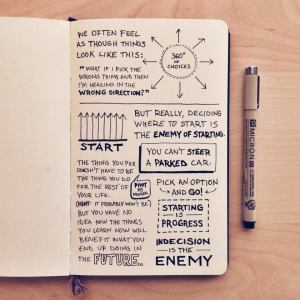 WE OFTEN FEEL
AS THOUGH THINGS
LOOK LIKE THIS:
360°
OF
CHOICES
"WHAT IF I PICK THE
WRONG THING AND THEN
I'M HEADING IN THE
WRONG DIRECTION?"
START
BUT REALLY, DECIDING
WHERE TO START IS
THE ENEMY OF STARTING.
YOU CAN'T STEER
A PARKED CAR.
THE THING YOU PICK
DOESN'T HAVE TO BE
THE THING YOU DO
FOR THE REST OF
YOUR LIFE.
(HINT: IT PROBABLY WON'T BE)
BUT YOU HAVE NO
IDEA HOW THE THINGS
YOU LEARN NOW WILL
BENEFIT WHAT YOU
END UP DOING IN
THE FUTURE.
PIVOT
AS
PICK AN OPTION
AND GO!
STARTING
IS
PROGRESS
INDECISION
IS THE
ENEMY
MICRON